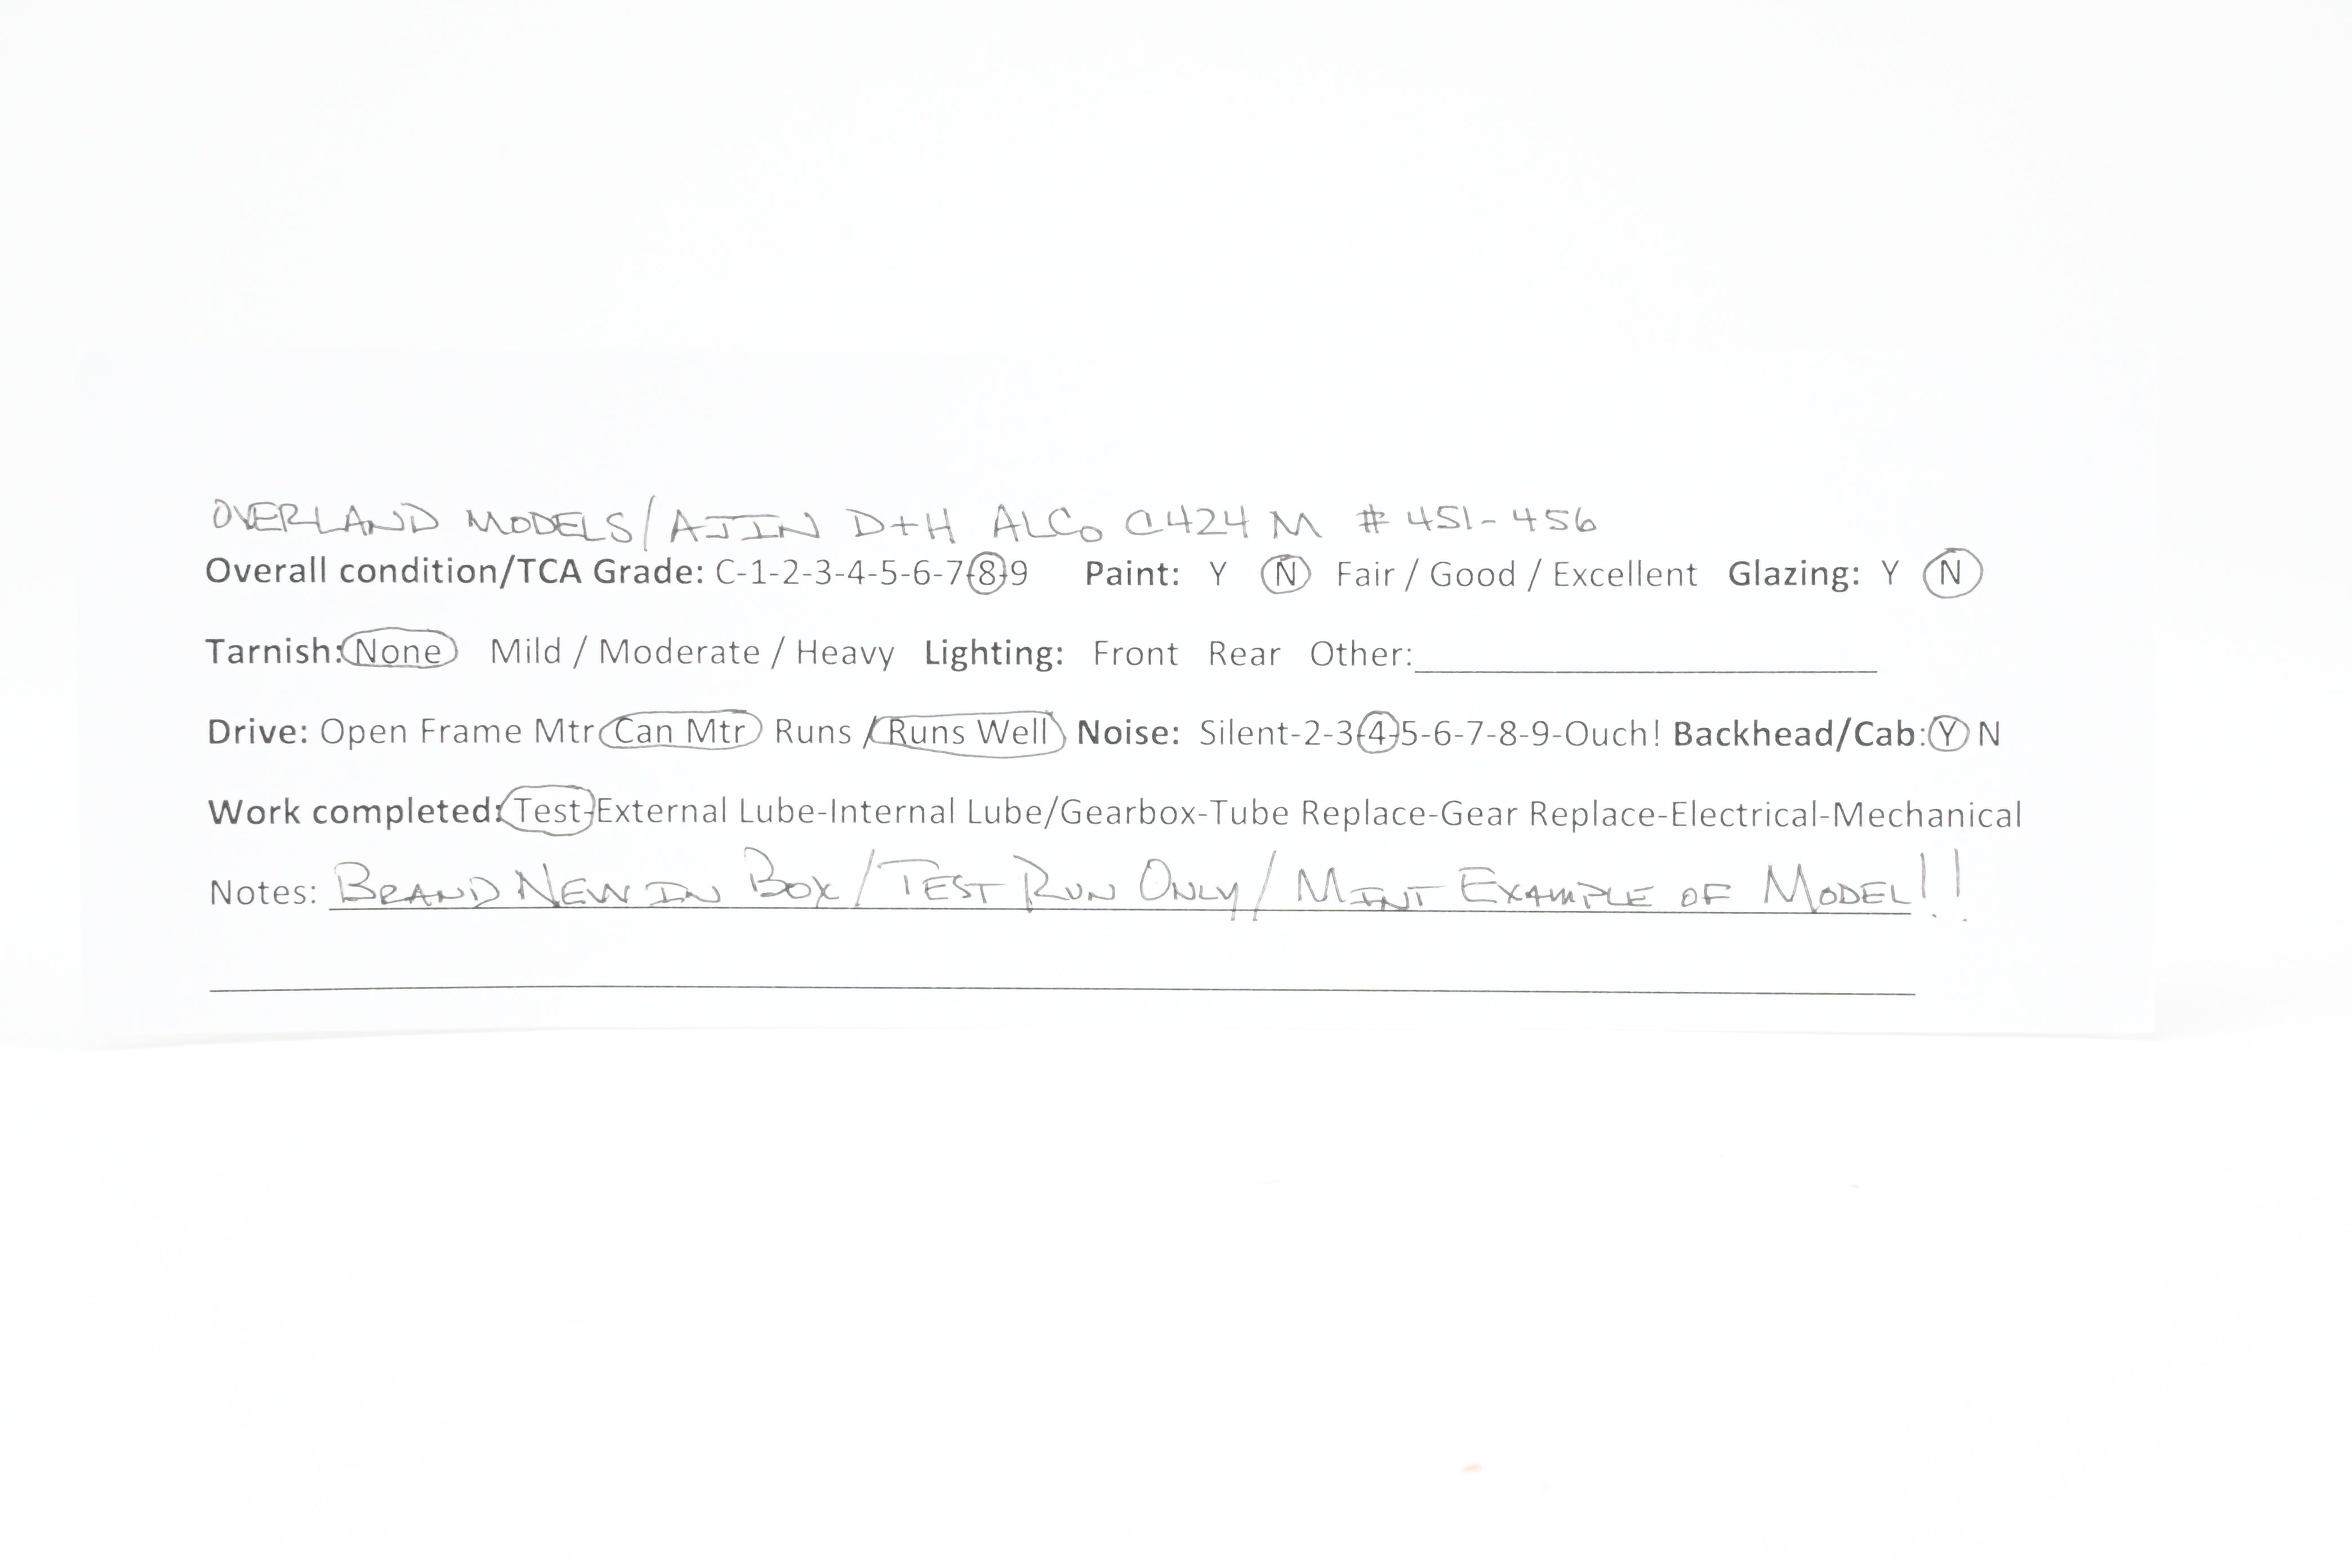 OVERLAND MODELS/AJIN D+H ALCo C424M #451-456
Overall condition/TCA Grade: C-1-2-3-4-5-6-7-8-9 Paint: Y N Fair / Good / Excellent Glazing: Y N
Tarnish: None Mild / Moderate / Heavy Lighting: Front Rear Other:
Drive: Open Frame Mtr Can Mtr Runs / Runs Well Noise: Silent-2-3-4-5-6-7-8-9-Ouch! Backhead/Cab: Y N
Work completed: Test-External Lube-Internal Lube/Gearbox-Tube Replace-Gear Replace-Electrical-Mechanical
Notes: BRAND NEW IN BOX/TEST RUN ONLY/MINT EXAMPLE OF MODEL!!